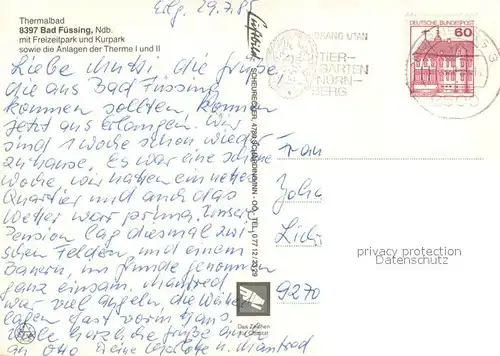 Erlg. 29.7.85
Thermalbad
8397 Bad Füssing, Ndb.
mit Freizeitpark und Kurpark
sowie die Anlagen der Therme I und II
Liebe Mutti die Grüße
die aus Bad Füssing
kommen sollten kommen
jetzt aus Erlangen. Wir
sind 1 Woche schon wieder
zuhause. Es war eine schöne
Woche wir hatten ein nettes
Quartier und auch das
Wetter war prima. Unsere
Pension lag diesmal zwi-
schen Felder und einem
Bauern, im Grunde genommen
ganz einsam. Manfred
war viel angeln, die Weiher
lagen fast vorm Haus.
Viele herzliche Grüße auch
an Otto Deine Manfred
Luftbild
DEUTSCHE BUNDESPOST
60
ORANG UTAN
TIER-
GARTEN
NÜRN-
BERG
Das Zeichen
für Qualität
Frau
9270
privacy protection
Datenschutz